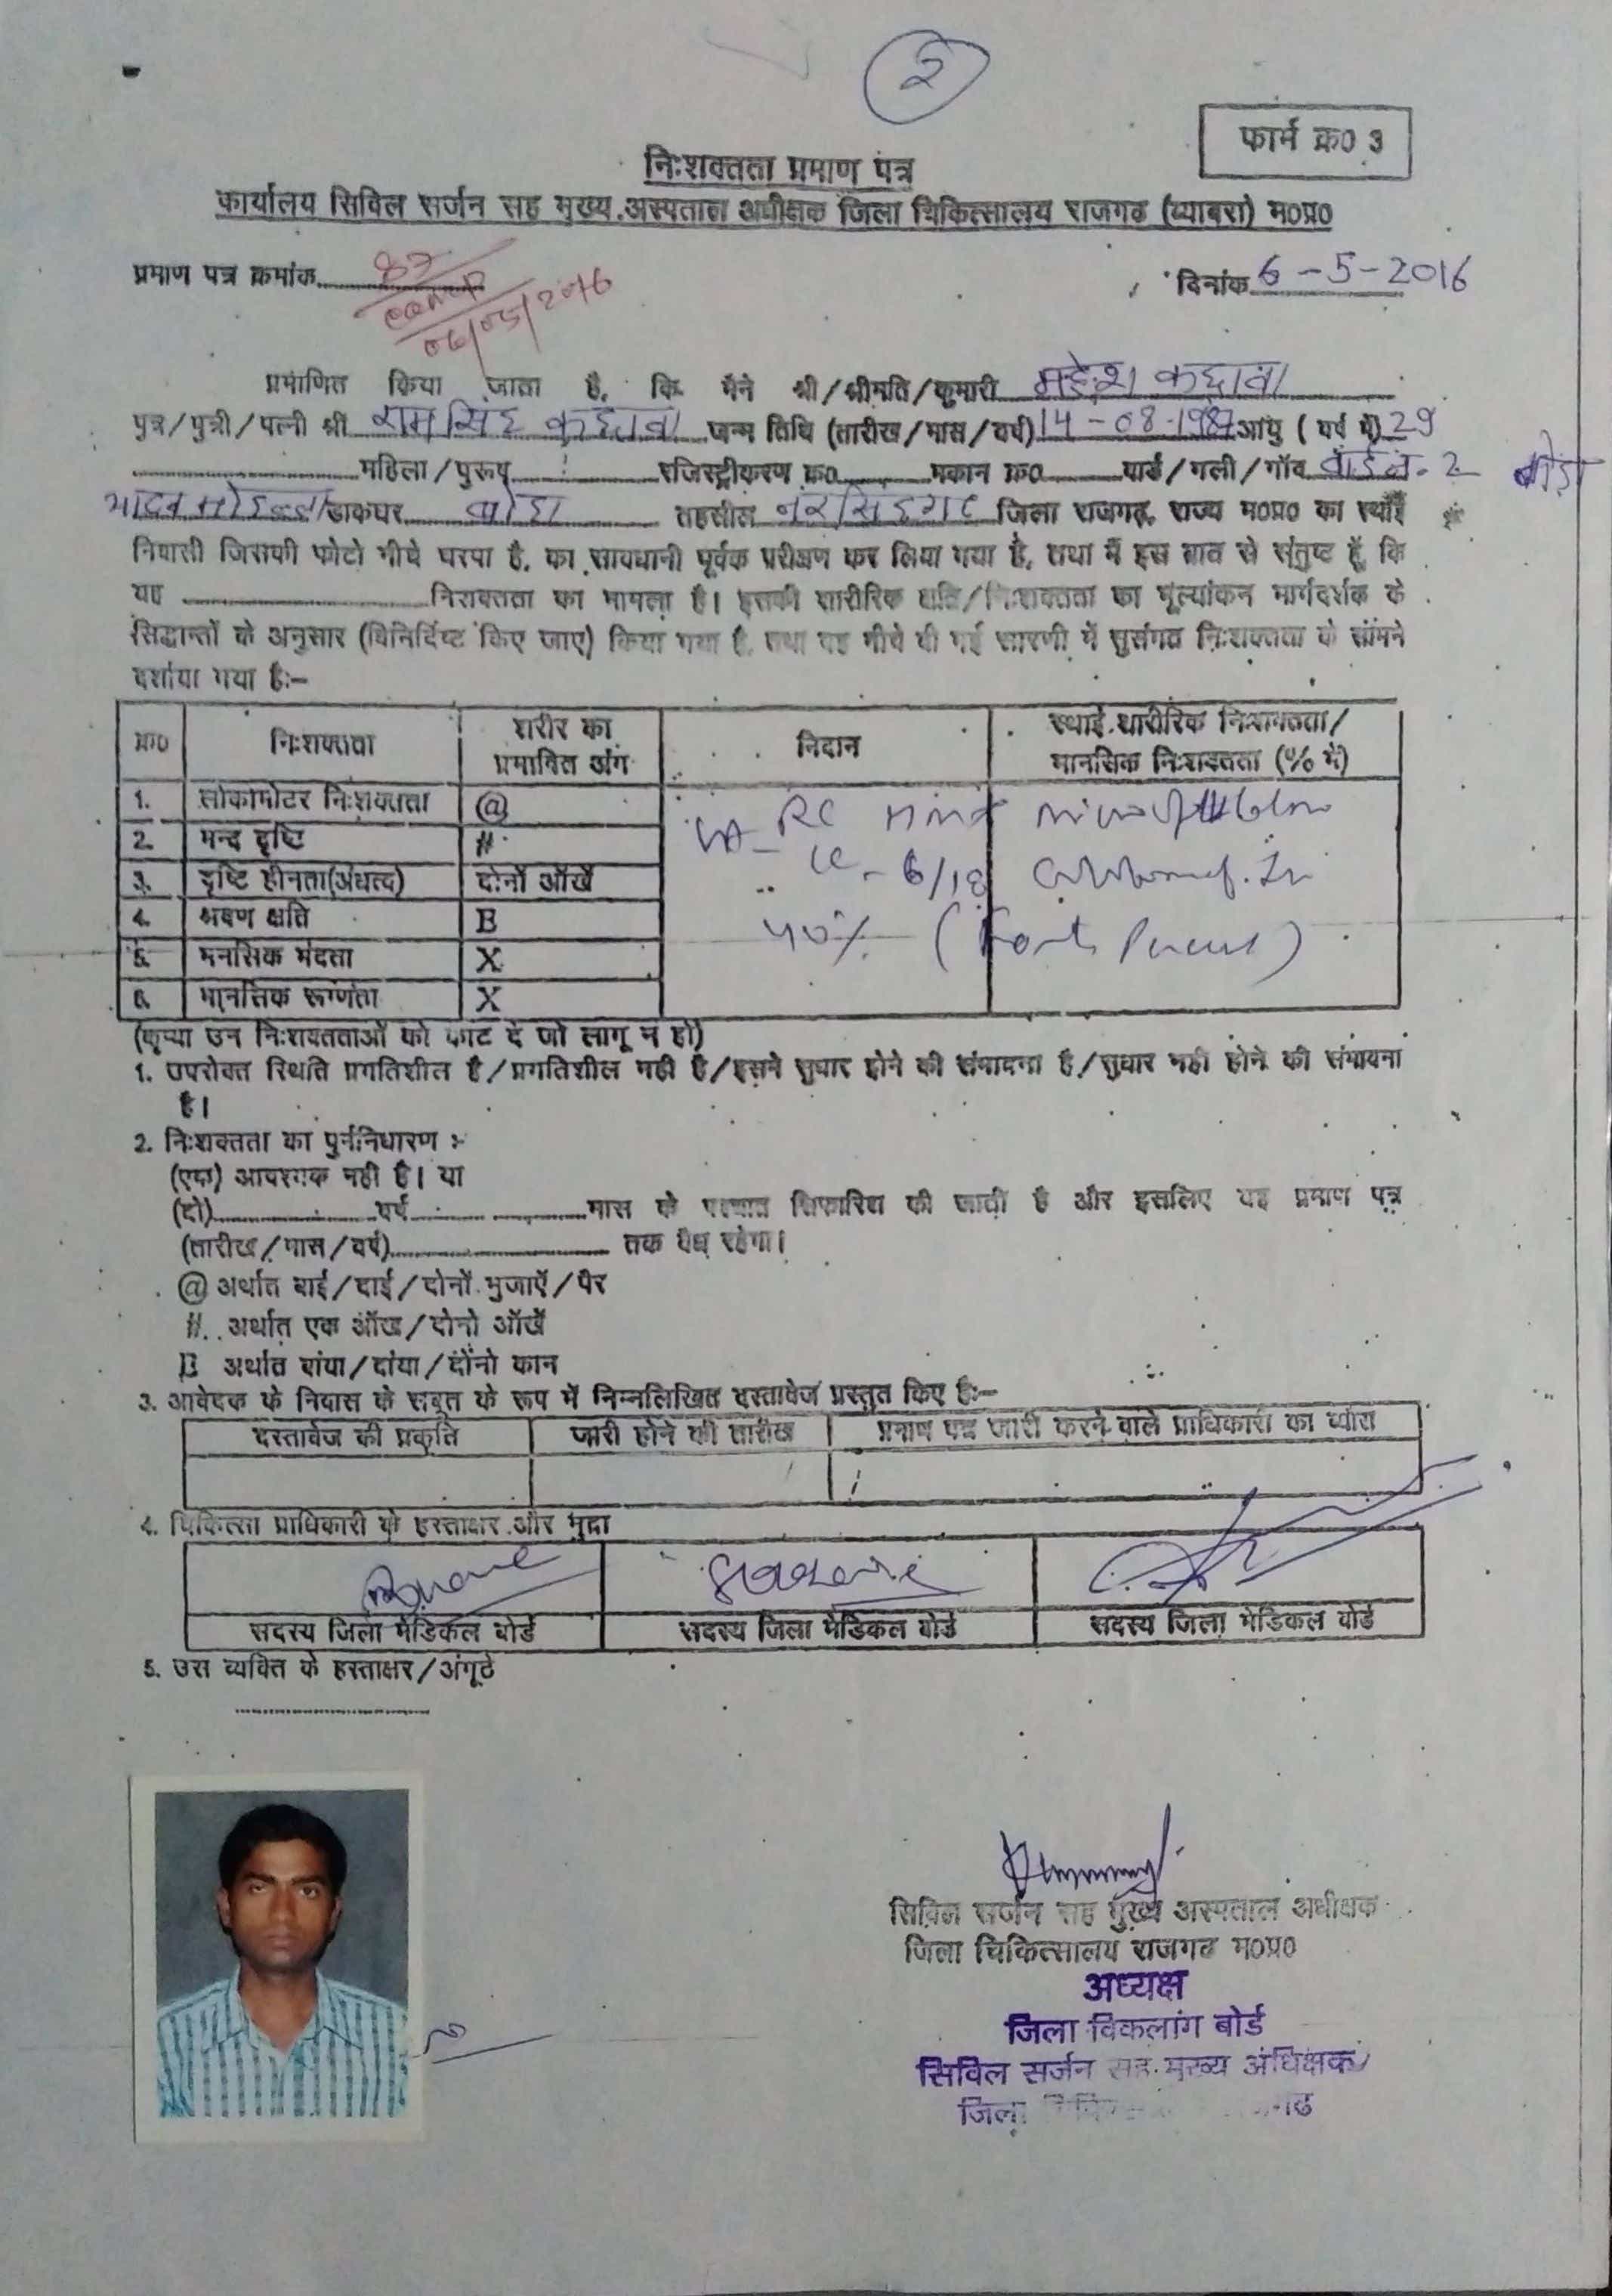 २
फार्म क्र0 3
निःशक्तता प्रमाण पत्र
कार्यालय सिविल सर्जन सह मुख्य अस्पताल अधीक्षक जिला चिकित्सालय राजगढ (ब्यावरा) म0प्र0
प्रमाण पत्र क्रमांक 87
camp
06/05/2016
दिनांक 6-5-2016
प्रमाणित किया जाता है, कि मैने श्री/श्रीमति/कुमारी महेश कछावा
पुत्र/पुत्री/पत्नी श्री रामसिंह कछावा जन्म तिथि (तारीख/मास/वर्ष) 14-08-1987 आयु ( वर्ष में) 29
महिला/पुरूष रजिस्ट्रीकरण क्र0 मकान क्र0 वार्ड/गली/गॉव वार्ड नं. 2 बोडा
मोहल्ला डाकघर बोडा तहसील नरसिंहगढ जिला राजगढ, राज्य म0प्र0 का स्थाई
निवासी जिसकी फोटो नीचे चस्पा है, का सावधानी पूर्वक परीक्षण कर लिया गया है, तथा मैं इस बात से संतुष्ट हूँ, कि
यह निःशक्तता का मामला है। इसकी शारीरिक क्षति/निःशक्तता का मूल्यांकन मार्गदर्शक के
सिद्धान्तों के अनुसार (विनिर्दिष्ट किए जाए) किया गया है, तथा यह नीचे दी गई सारणी में सुसंगत निःशक्तता के सामने
दर्शाया गया हैः–
क्र0 निःशक्तता शरीर का प्रभावित अंग निदान स्थाई शारीरिक निःशक्तता/ मानसिक निःशक्तता (% में)
1. लोकामोटर निःशक्तता @
2. मन्द दृष्टि #
3. दृष्टि हीनता(अंधत्व) दोनों ऑखें
4. श्रवण क्षति B
5. मनसिक मंदता X
6. मानसिक रूग्णता X
VA - RE
LE - 6/18
40%
(कृप्या उन निःशक्तताओं को काट दें जो लागू न हो)
1. उपरोक्त स्थिति प्रगतिशील है/प्रगतिशील नही है/इसने सुधार होने की संभावना है/सुधार नही होने की संभावना
है।
2. निःशक्तता का पुर्ननिधारण :-
(एक) आवश्यक नही है। या
(दो) वर्ष मास के पश्चात सिफारिश की जाती है और इसलिए यह प्रमाण पत्र
(तारीख/मास/वर्ष) तक वैध रहेगा।
@ अर्थात बाई/दाई/दोनों भुजाऍ/पैर
# अर्थात एक ऑख/दोनो ऑखें
B अर्थात बांया/दांया/दोंनो कान
3. आवेदक के निवास के सबूत के रूप में निम्नलिखित दस्तावेज प्रस्तुत किए हैः–
दस्तावेज की प्रकृति जारी होने की तारीख प्रमाण पत्र जारी करने वाले प्राधिकारी का ब्यौरा
4. चिकित्सा प्राधिकारी के हस्ताक्षर और मुद्रा
सदस्य जिला मेडिकल बोर्ड सदस्य जिला मेडिकल बोर्ड सदस्य जिला मेडिकल बोर्ड
5. उस व्यक्ति के हस्ताक्षर/अंगूठे
सिविल सर्जन सह मुख्य अस्पताल अधीक्षक
जिला चिकित्सालय राजगढ म0प्र0
अध्यक्ष
जिला विकलांग बोर्ड
सिविल सर्जन सह मुख्य अधिक्षक
जिला